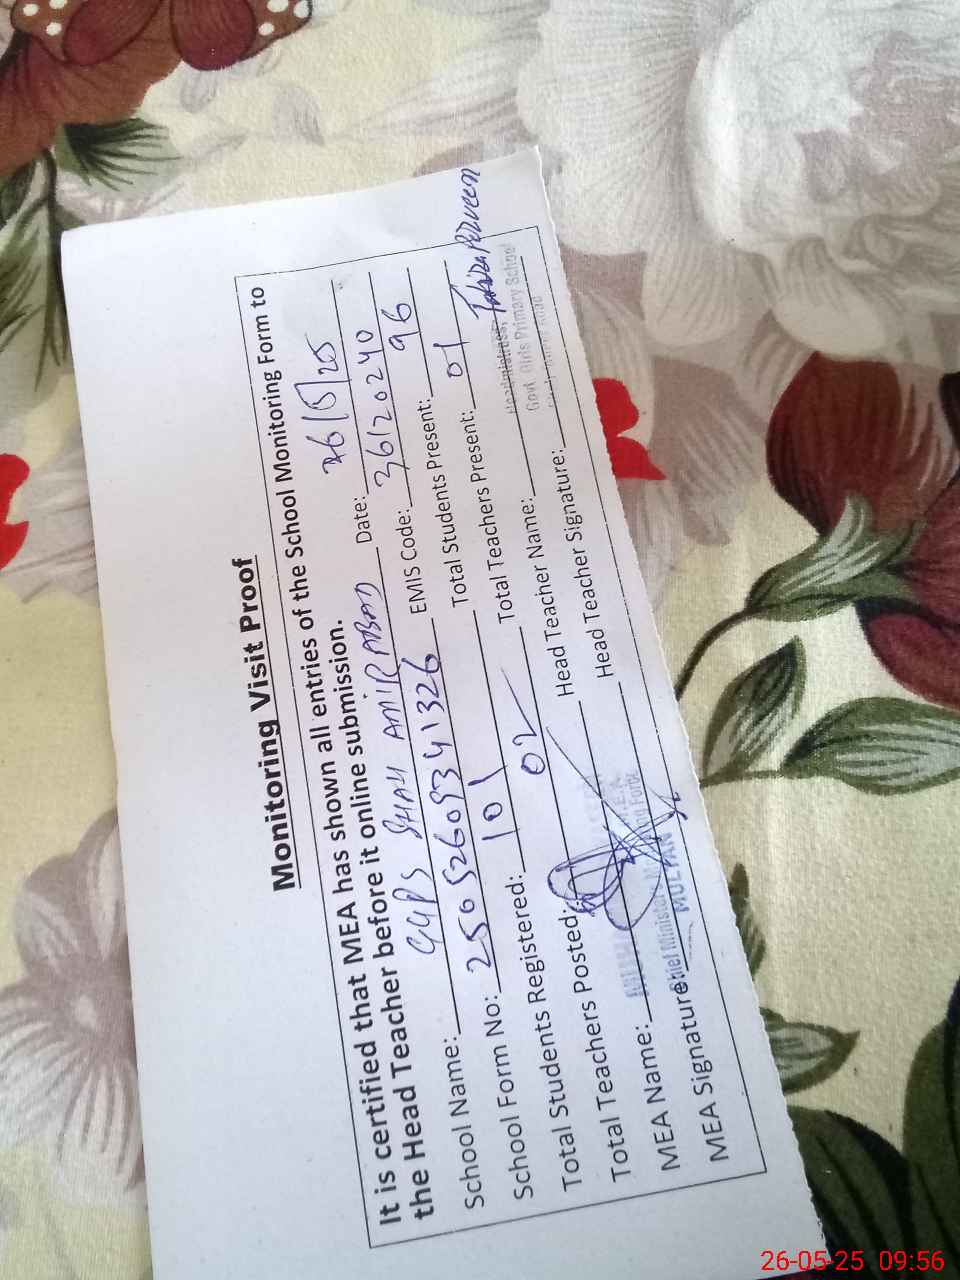 Monitoring Visit Proof
It is certified that MEA has shown all entries of the School Monitoring Form to
the Head Teacher before it online submission.
School Name: GGPS SHAH AMIR ABAD Date: 26/5/25
School Form No: 250526093 41326 EMIS Code: 36120240
Total Students Registered: 101 Total Students Present: 96
Total Teachers Posted: 02 Total Teachers Present: 01
MEA Name: Head Teacher Name: Perveen
MEA Signature: Head Teacher Signature:
Chief Ministers Force
MULTAN
Headmistress,
Govt. Girls Primary School
26-05-25 09:56